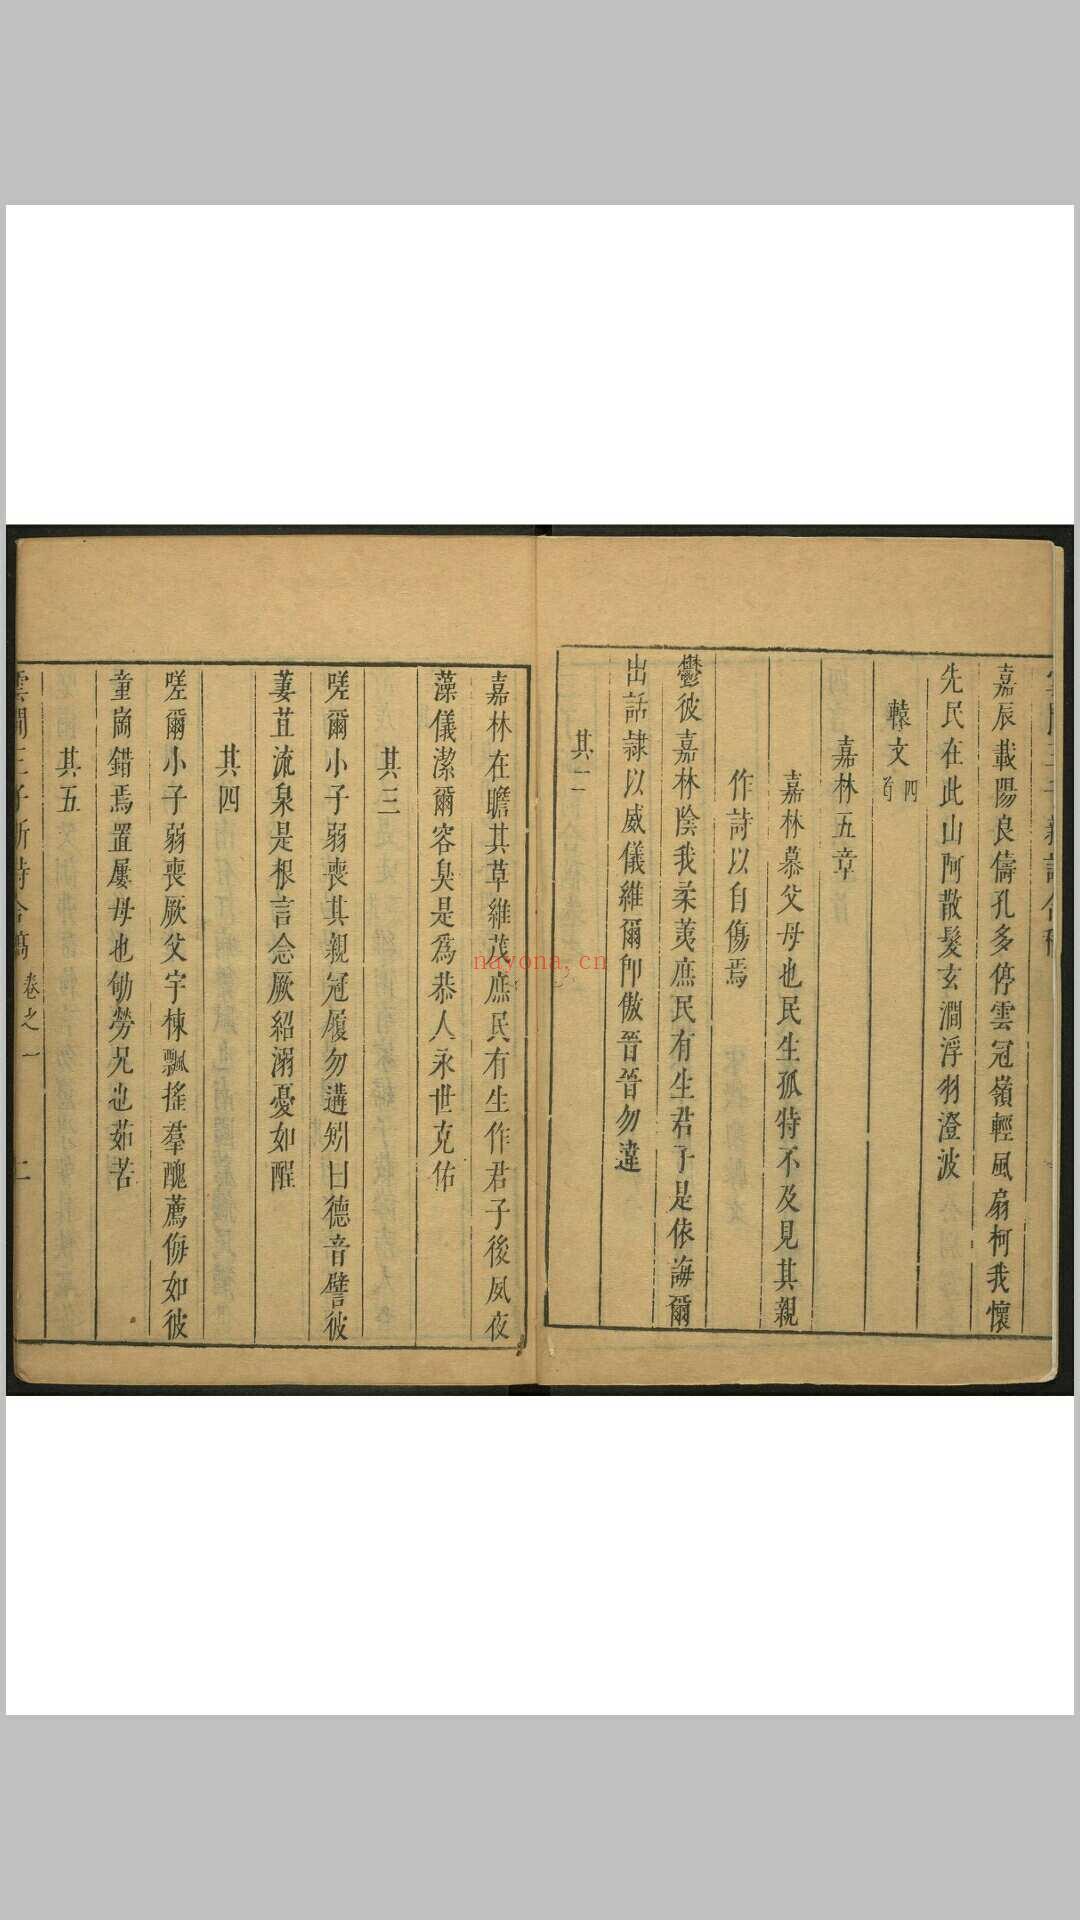 嘉辰載陽良儔孔多停雲冠嶺輕風扇柯我懷
先民在此山阿散髮玄澗浮羽澄波
轅文四首
嘉林五章
嘉林慕父母也民生孤特不及見其親
作詩以自傷焉
鬱彼嘉林陰我柔荑庶民有生君子是依誨爾
出話隷以威儀維爾卬傲晉晉勿違
其二
嘉林在瞻其草維茂庶民有生作君子後夙夜
藻儀潔爾容臭是爲恭人永世克佑
其三
嗟爾小子弱喪其親冠履勿遘矧曰德音譬彼
萋苴流泉是根言念厥紹溺憂如酲
其四
嗟爾小子弱喪厥父宇棟飄搖羣醜薦侮如彼
童崗錯焉置屢母也劬勞兄也茹苦
其五
雲間三子新詩合稿 卷之一 二
nayona.cn